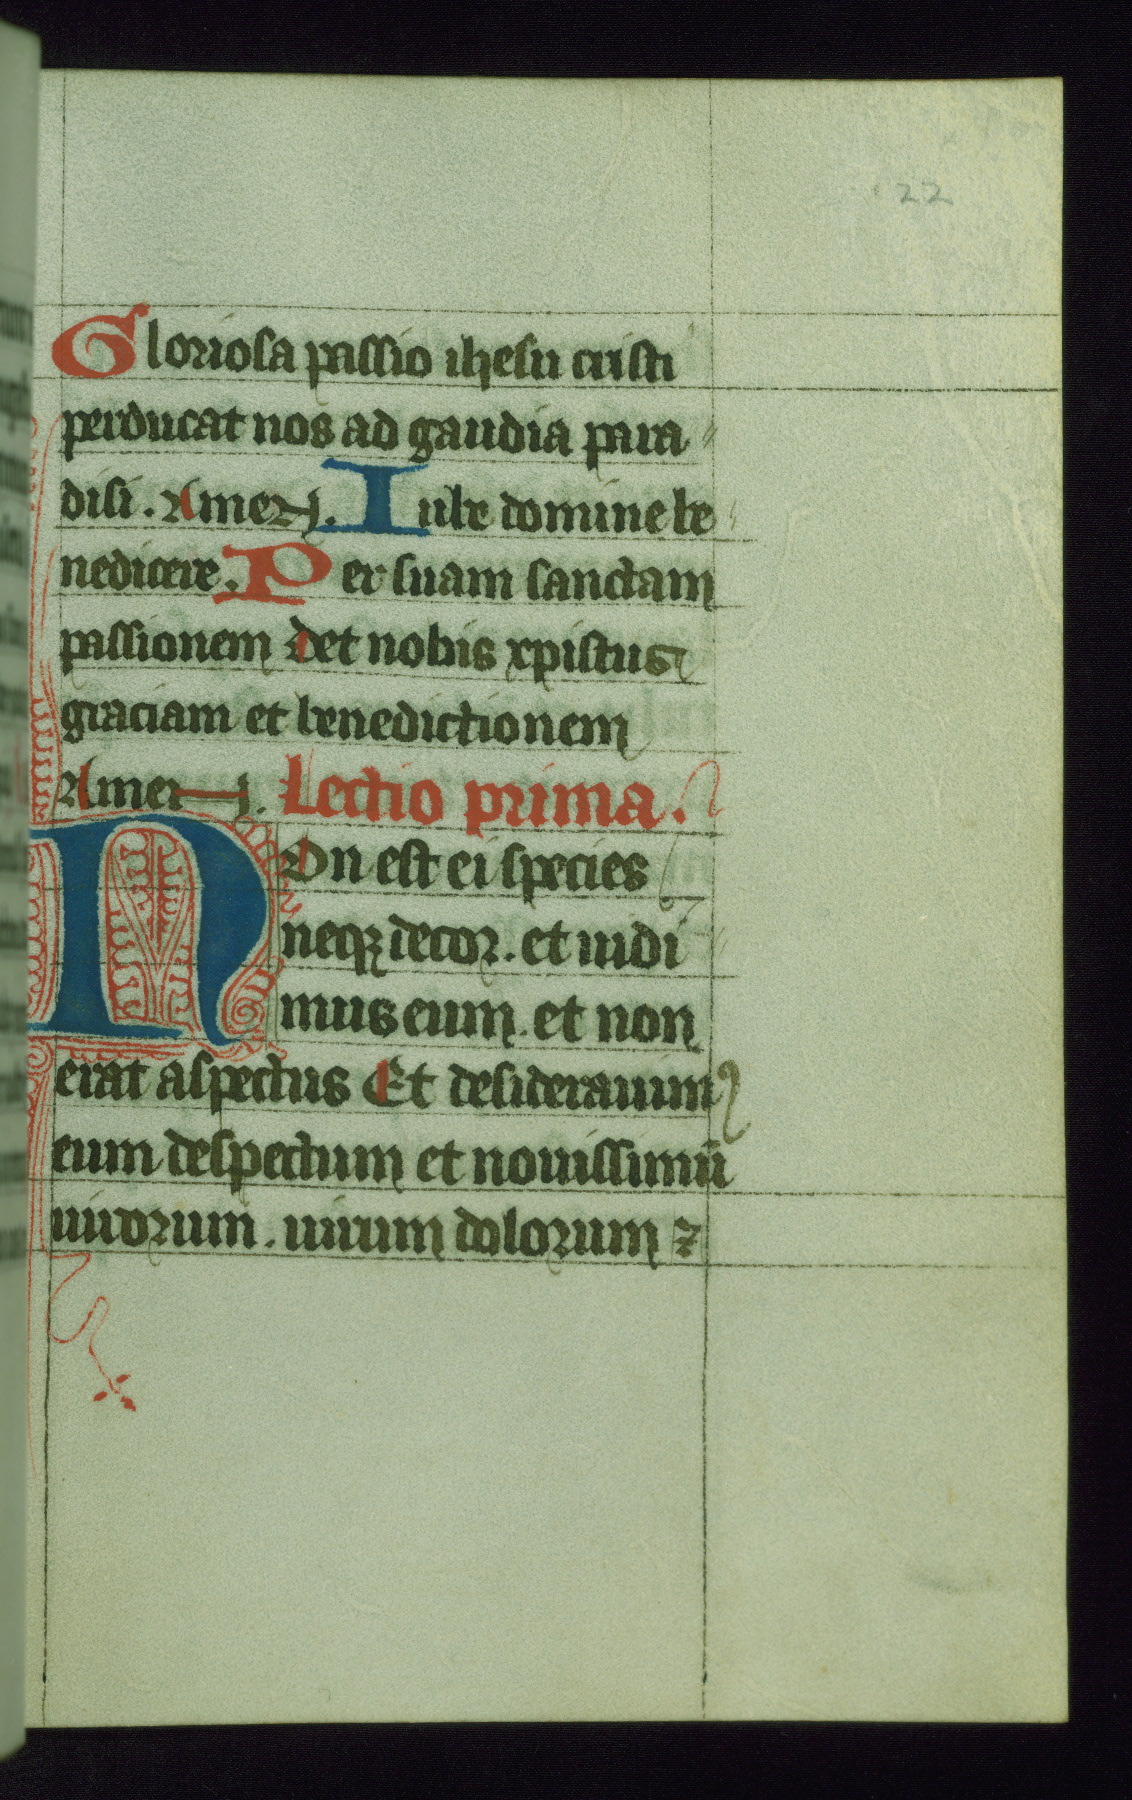 22
Gloriosa passio ihesu cristi
perducat nos ad gaudia para
disi. Amen. Iube domine be
nedicere. Per suam sanctam
passionem det nobis xpistus
graciam et benedictionem
Amen. Lectio prima.
Non est ei species
neqꝫ decor. et uidi
mus eum. et non
erat aspectus Et desiderauim9
eum despectum et nouissimū
uirorum. uirum dolorum ⁊